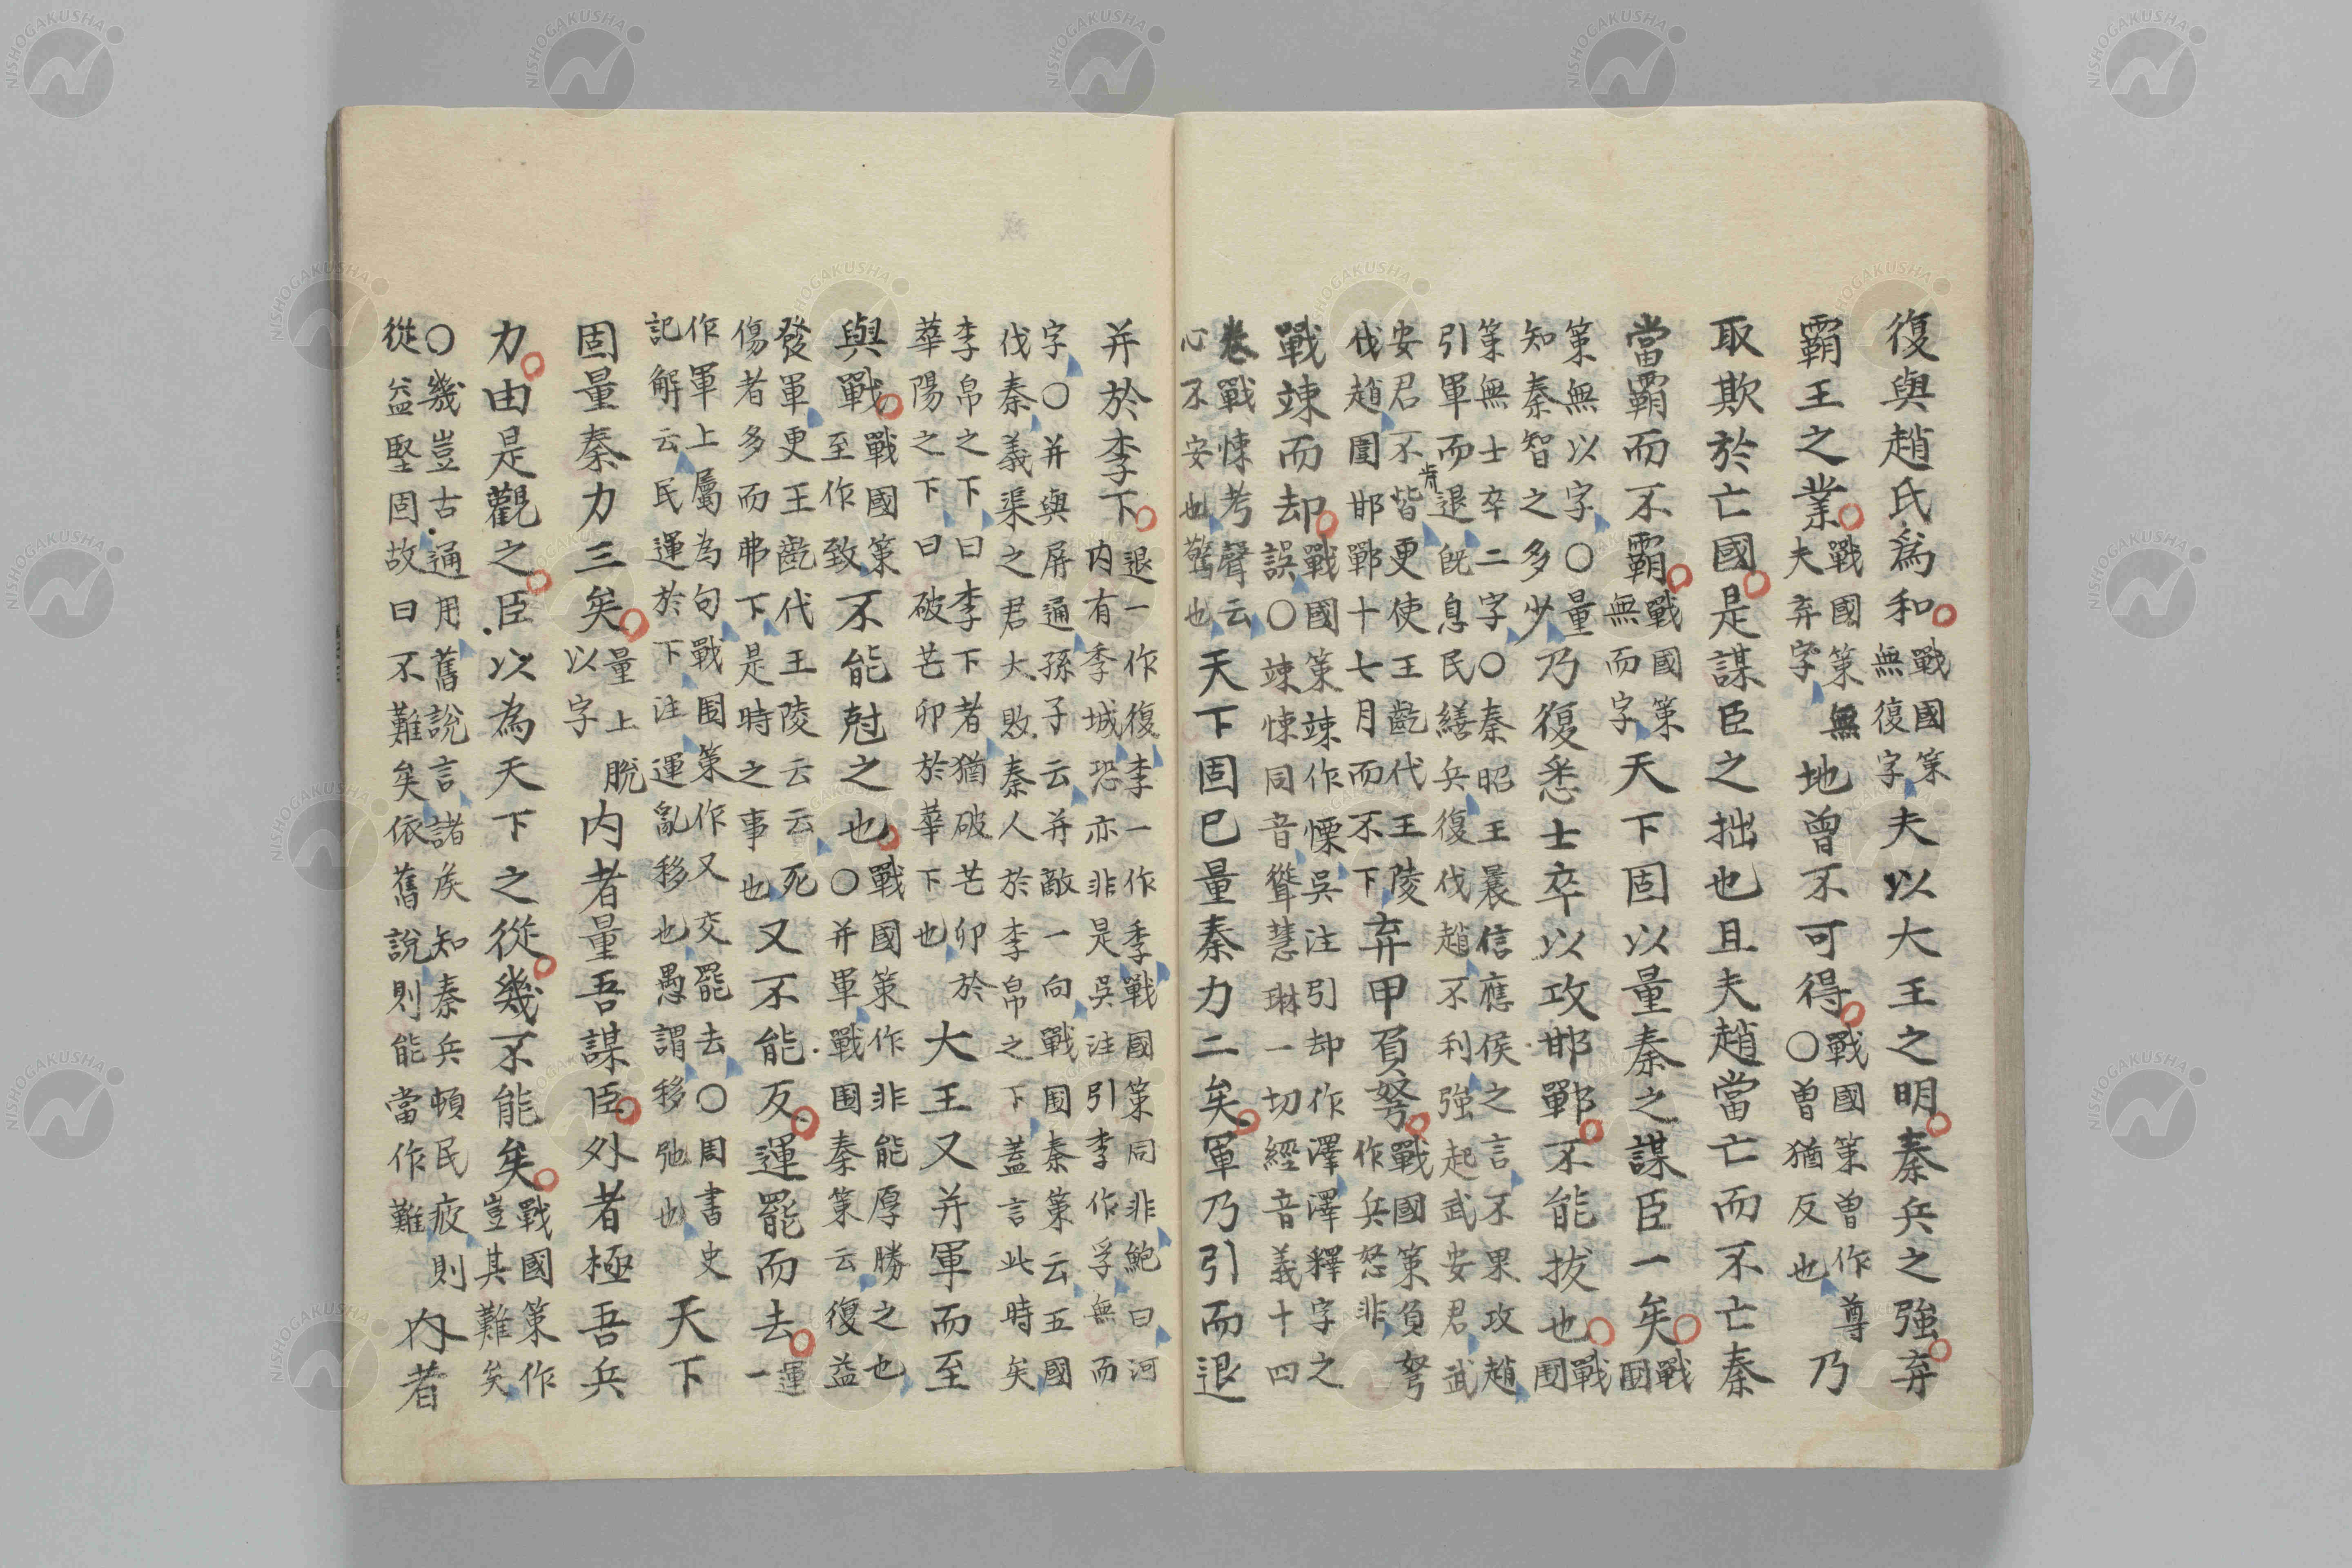 復與趙氏爲和戰國策無復字夫以大王之明秦兵之強弃
覇王之業戰國策無夫弃字地曾不可得戰國策曽作尊〇曽猶反也乃
取欺於亡國是謀臣之拙也且夫趙當亡而不亡秦
當霸而不霸戰國策無而字天下固以量秦之謀臣一矣戰國
策無以字〇量知秦智之多少乃復悉士卒以攻邯鄲不能拔也戰國
策無士卒二字〇秦昭王晨信應侯之言不果攻趙引軍而退旣息民繕兵復伐趙不利強起武安君武
安君不肯更使王齕代王陵伐趙圍邯鄲十七月而不下弃甲負弩戰國策負弩作兵怒非
戰竦而却戰國策竦作慄吳注引却作澤澤釋字之誤〇竦悚同音聳慧琳一切經音義十四
巻戰悚考聲云心不安也驚也天下固已量秦力二矣軍乃引而退
并於李下退一作復李一作季戰國策同非鮑曰河内有季城恐亦非是吳注引李作孚無而
字〇并與屏通孫子云并敵一向戰国秦策云五國伐秦義渠之君大敗秦人於李帛之下蓋言此時矣
李帛之下曰李下者猶破芒卯於華陽之下曰破芒卯於華下也大王又并軍而至
與戰戰國策至作致不能尅之也戰國策作非能厚勝之也〇并軍戰国秦策云復益
發軍更王齕代王陵云云死傷者多而弗下是時之事也又不能反運罷而去運一
作軍上屬為句戰国策作又交罷去〇周書史記解云民運於下注運亂移也愚謂移移弛也天下
固量秦力三矣量上脱以字内者量吾謀臣外者極吾兵
力由是觀之臣以為天下之從幾不能矣戰國策作豈其難矣
〇幾豈古通用舊說言諸矦知秦兵頓民疲則從益堅固故曰不難矣依舊說則能當作難内者